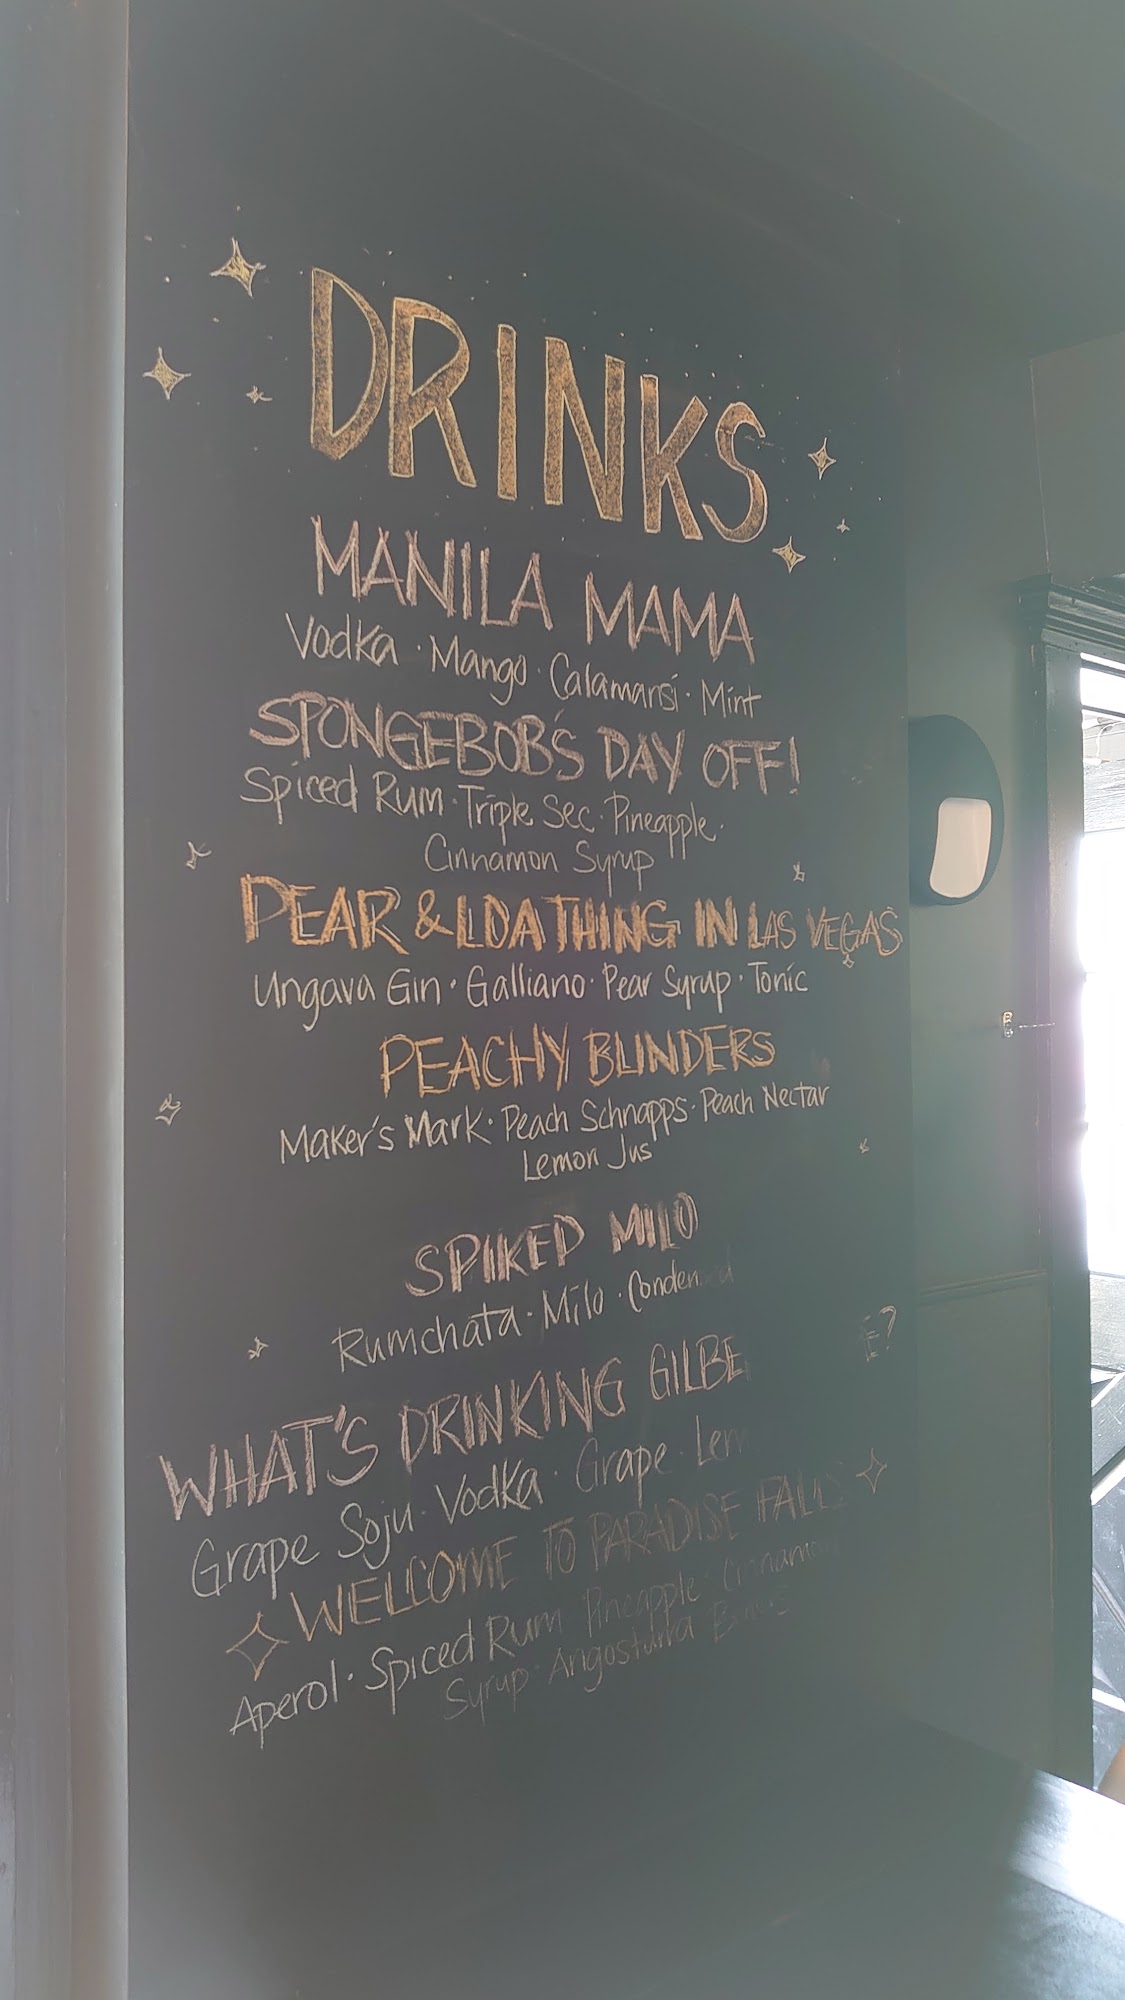 DRINKS
MANILA MAMA
Vodka · Mango · Calamansi · Mint
SPONGEBOB'S DAY OFF!
Spiced Rum · Triple Sec · Pineapple ·
Cinnamon Syrup
PEAR & LOATHING IN LAS VEGAS
Ungava Gin · Galliano · Pear Syrup · Tonic
PEACHY BLINDERS
Maker's Mark · Peach Schnapps · Peach Nectar
Lemon Jus
SPIKED MILO
Rumchata · Milo ·
WHAT'S DRINKING
Grape Soju · Vodka · Grape ·
WELCOME TO PARADISE FALLS
Aperol · Spiced Rum Pineapple · Cinnamon
Syrup · Angostura